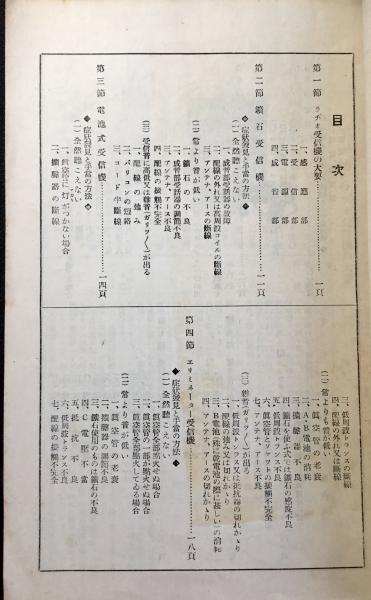 目次
第一節 ラヂオ受信機の大要……………一頁
一、感應部
二、受信部
三、電源部
四、成音部
第二節 鑛石受信機……………一一頁
◆症狀發見と手當の方法◆
(一)全然聽こえない
一、成音部受話器の故障
二、配線の外れ又は高周波コイルの斷線
三、アンテナ、アース不良
(二)常より音が低い
一、鑛石の不良
二、成音部受話器の調節不良
三、アンテナ、アース不良
四、配線の接觸不完全
(三)受信音に高低又は雜音(ガリツ〱)が出る
一、配線の弛み
二、バリコンの短絡
三、コード半斷線
第三節 電池式受信機……………一四頁
◆症狀發見と手當の方法◆
(一)全然聽こえない
一、眞空管に灯がつかない場合
二、擴聲器の斷線
三、低周波トランスの斷線
四、配線の外れ又は斷線
(二)常よりも音が低い
一、眞空管の老衰
二、A・B電池の消耗
三、擴聲器不良
四、鑛石を使ふ式では鑛石の感度不良
五、低周波トランス不良
六、眞空管とソケットの接觸不完全
七、アンテナ、アース不良
(三)雜音(ガリツ〱)が出る
一、低周波トランス又は抵抗器の切れかゝり
二、配線の弛み又は切れかゝり
三、B電池(殊に乾電池の際に甚しい)の消耗
四、アンテナ、アースの切れかゝり
第四節 エリミネーター受信機……………一八頁
◆症狀發見と手當の方法◆
(一)全然聽こえない
一、眞空管の全部點火せぬ場合
二、眞空管の一部が點火せぬ場合
三、眞空管全部點火してゐる場合
(二)常より音が低い
一、眞空管の老衰
二、擴聲器の調節不良
三、鑛石使用のものは鑛石の不良
四、C電壓不當
五、抵抗不良
六、低周波トランス不良
七、配線の接觸不完全